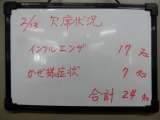 2/12 欠席状況
インフルエンザ 17名
かぜ様症状 7名
合計 24名